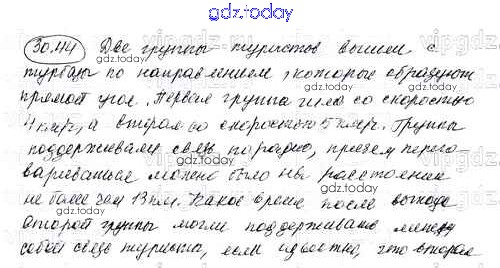 gdz.today
30.44 Две группы туристов вышли с
турбазы по направлением, которые образуют
прямой угол. Первая группа шла со скоростью
4 км/ч, а вторая со скоростью 5 км/ч. Группы
поддерживали связь по радио, причем перего-
вариваться можно было на расстоянии
не более чем 13 км. Какое время после выхода
второй группы могли поддерживать между
собой связь туристы, если известно, что вторая